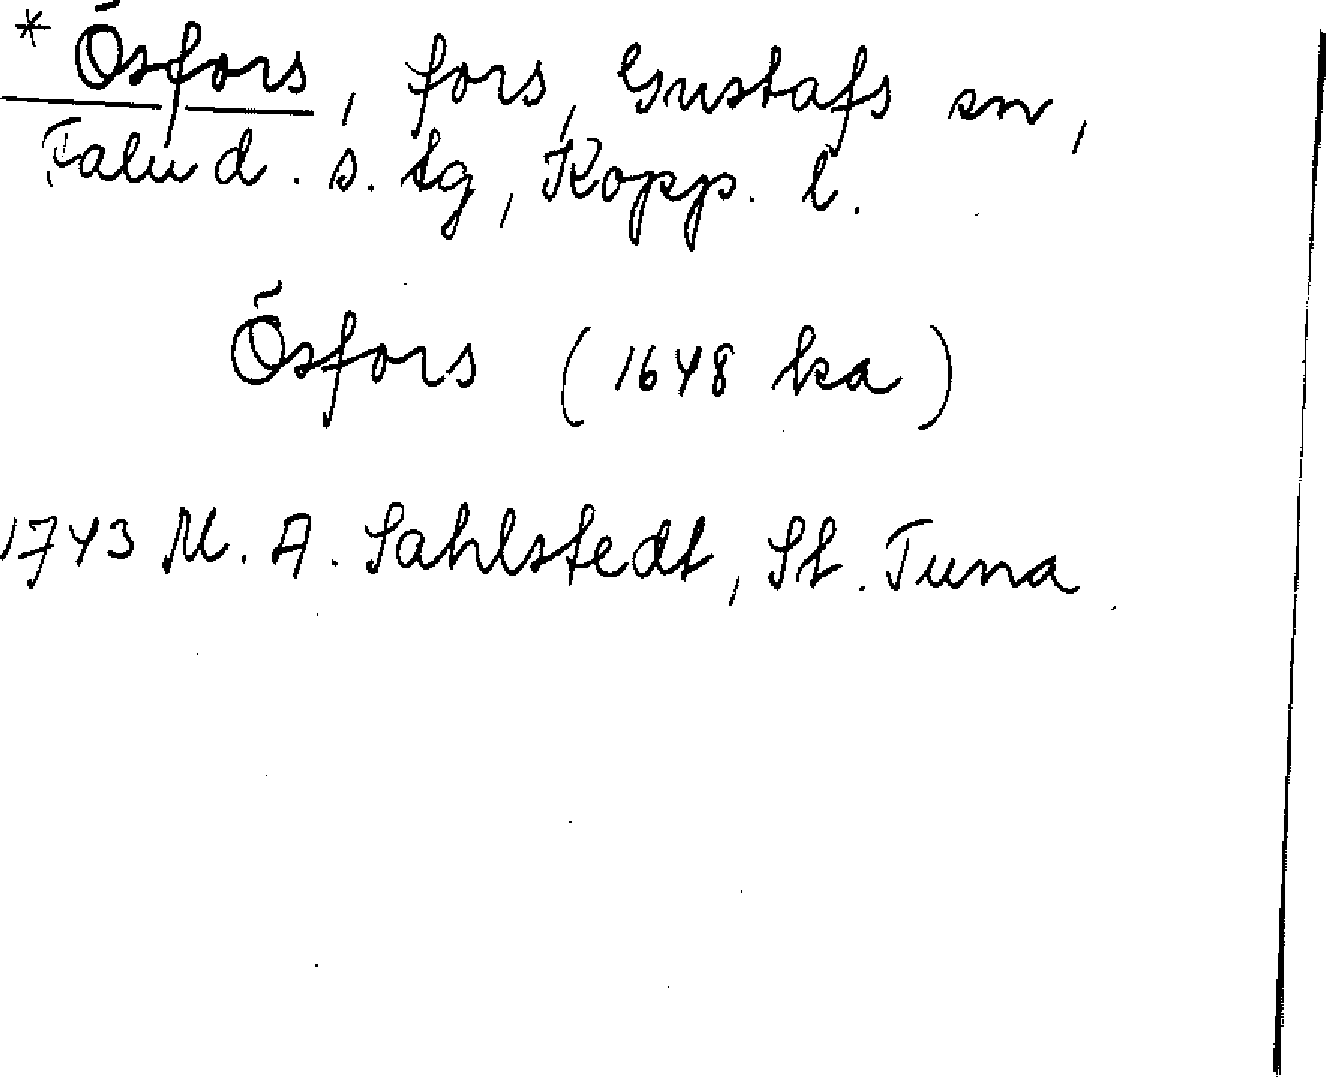 * Ösfors, fors, Gustafs sn,
Falu d. s. tg, Kopp. l.
Ösfors (1648 ka)
1743 M. A. Sahlstedt, St. Tuna